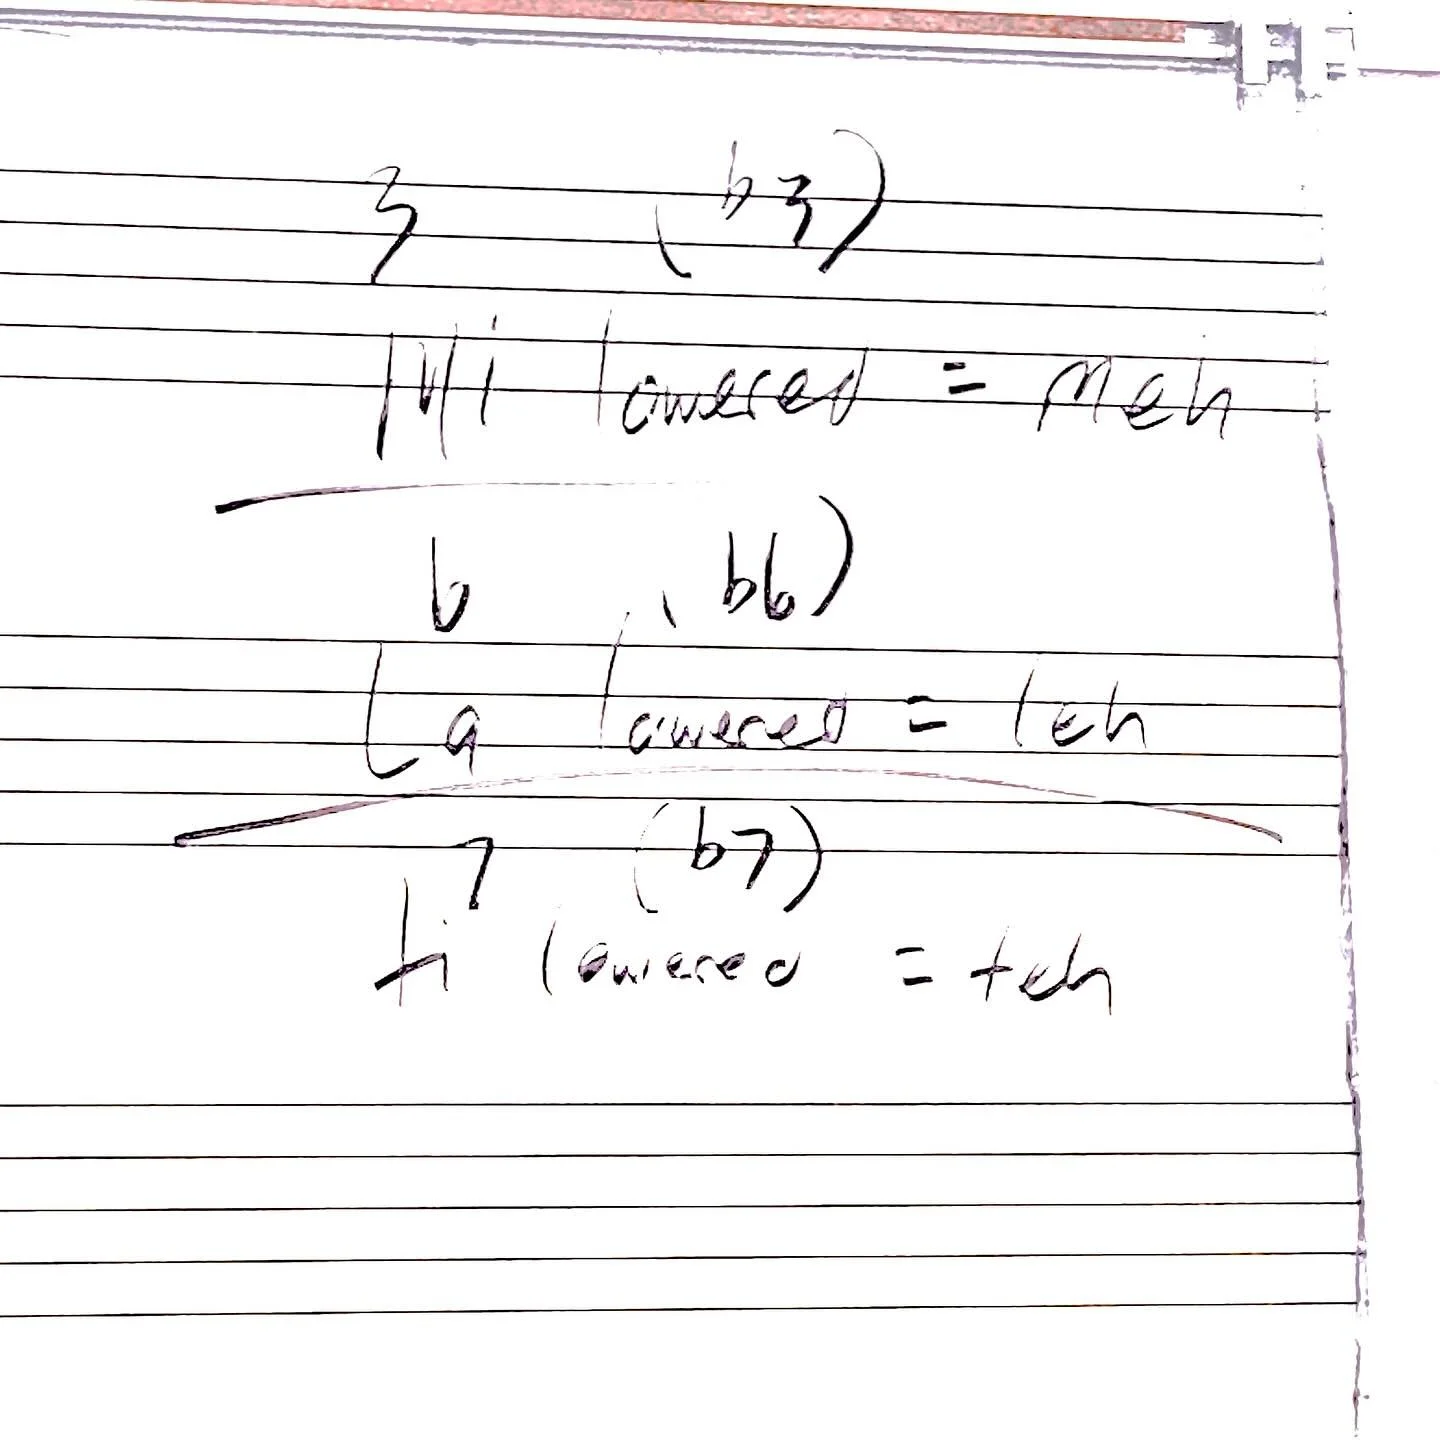 3 (b3)
Mi lowered = Meh
6 (b6)
La lowered = leh
7 (b7)
ti lowered = teh